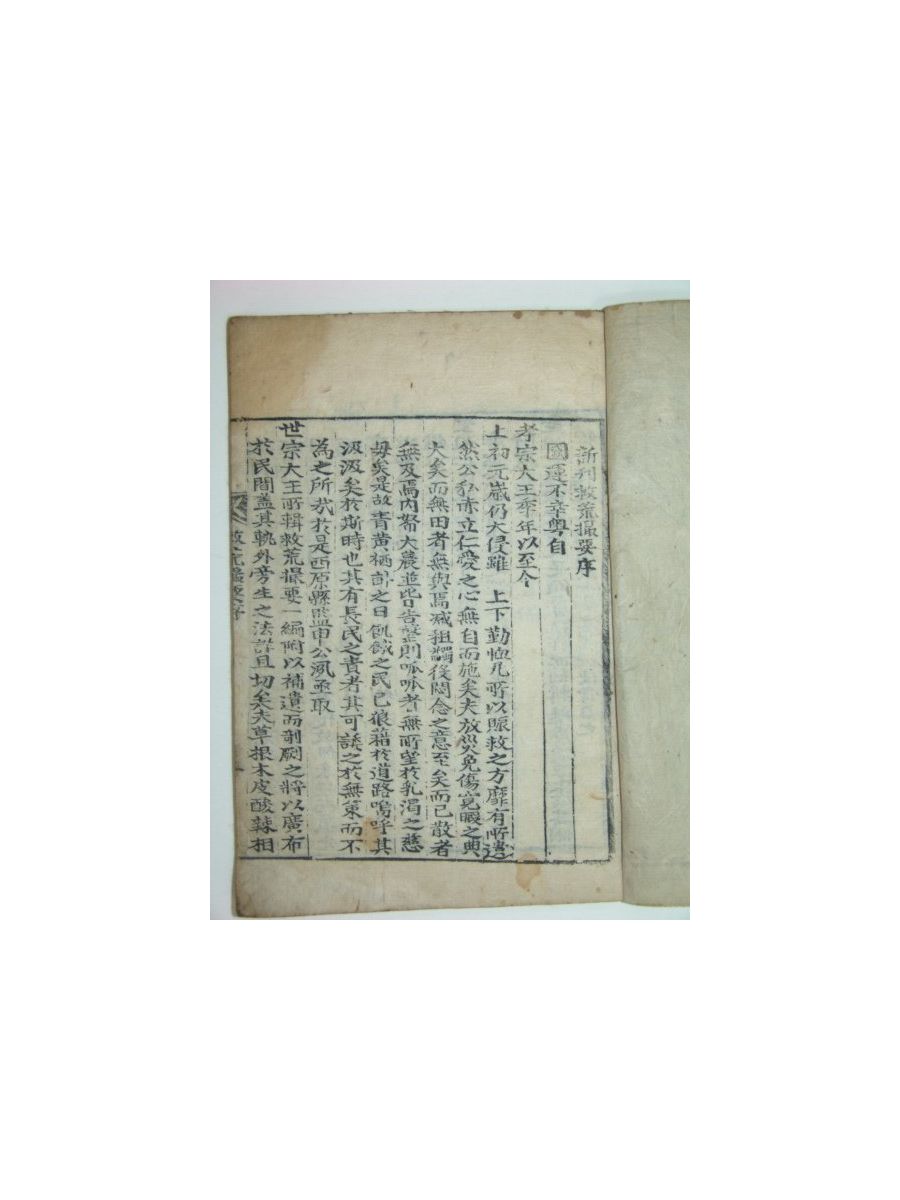 新刊救荒撮要序
國運不幸粤自
考宗大王季年以至今
上初元歲仍大侵雖 上下勤恤凡所以賑救之方靡有所遺
然公私赤立仁愛之心無自而施矣夫放災免傷寬暇之典
大矣而無田者無與焉减租蠲後悶念之意至矣而已散者
無及焉內帑大農並皆告罄則呱呱者無所望於乳渴之慈
毋矣是故青黃栖畝之日飢餓之民已狼藉於道路嗚呼其
汲汲矣於斯時也其有長民之責者其可諉之於無策而不
為之所哉於是西原縣監申公洬亟取
世宗大王所輯救荒撮要一編附以補遺而剞劂之將以廣布
於民間盖其執外旁生之法詳且切矣夫草根木皮酸辣相